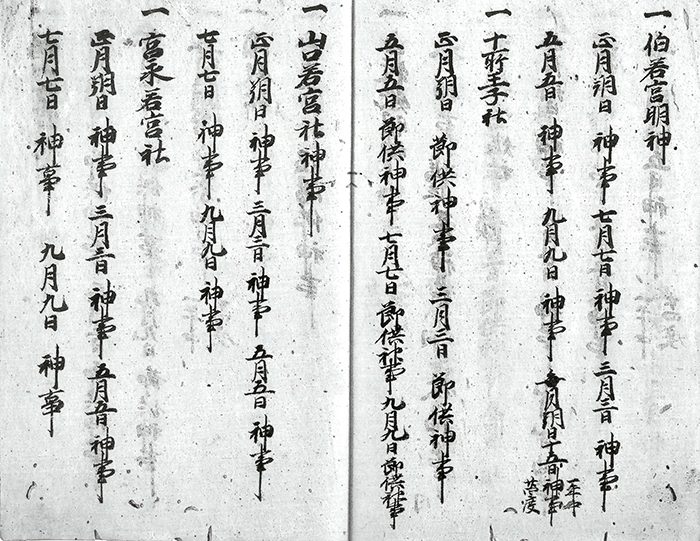 一 伯若宮明神
正月朔日 神事 七月七日 神事 三月三日 神事
五月五日 神事 九月九日 神事 毎月朔日十五日神事
一 十所王子社
正月朔日 節供神事 三月三日 節供神事
五月五日 節供神事 七月七日 節供神事 九月九日 節供神事
一 山口若宮社神事
正月朔日 神事 三月三日 神事 五月五日 神事
七月七日 神事 九月九日 神事
一 宮永若宮社
正月朔日 神事 三月三日 神事 五月五日 神事
七月七日 神事 九月九日 神事